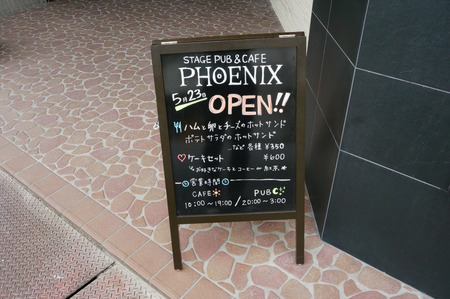 STAGE PUB & CAFE
PHOENIX
5月23日
OPEN!!
ハムと卵とチーズのホットサンド
ポテトサラダのホットサンド
...など各種 ¥350
♡ケーキセット ¥600
お好きなケーキとコーヒー or 紅茶
営業時間
CAFE PUB
10:00~19:00 / 20:00~3:00